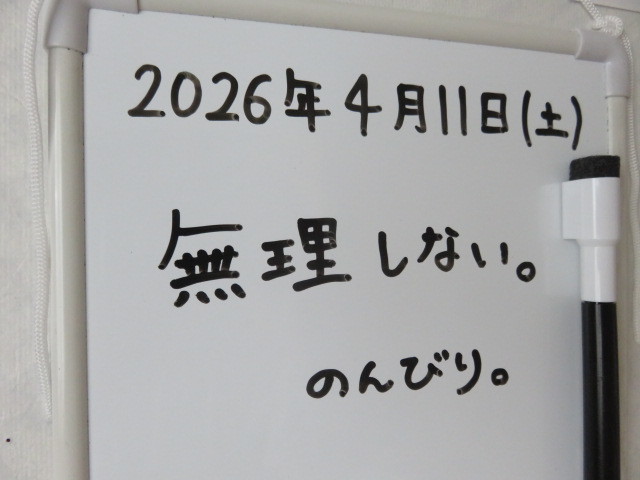 2026年4月11日(土)
無理しない。
のんびり。